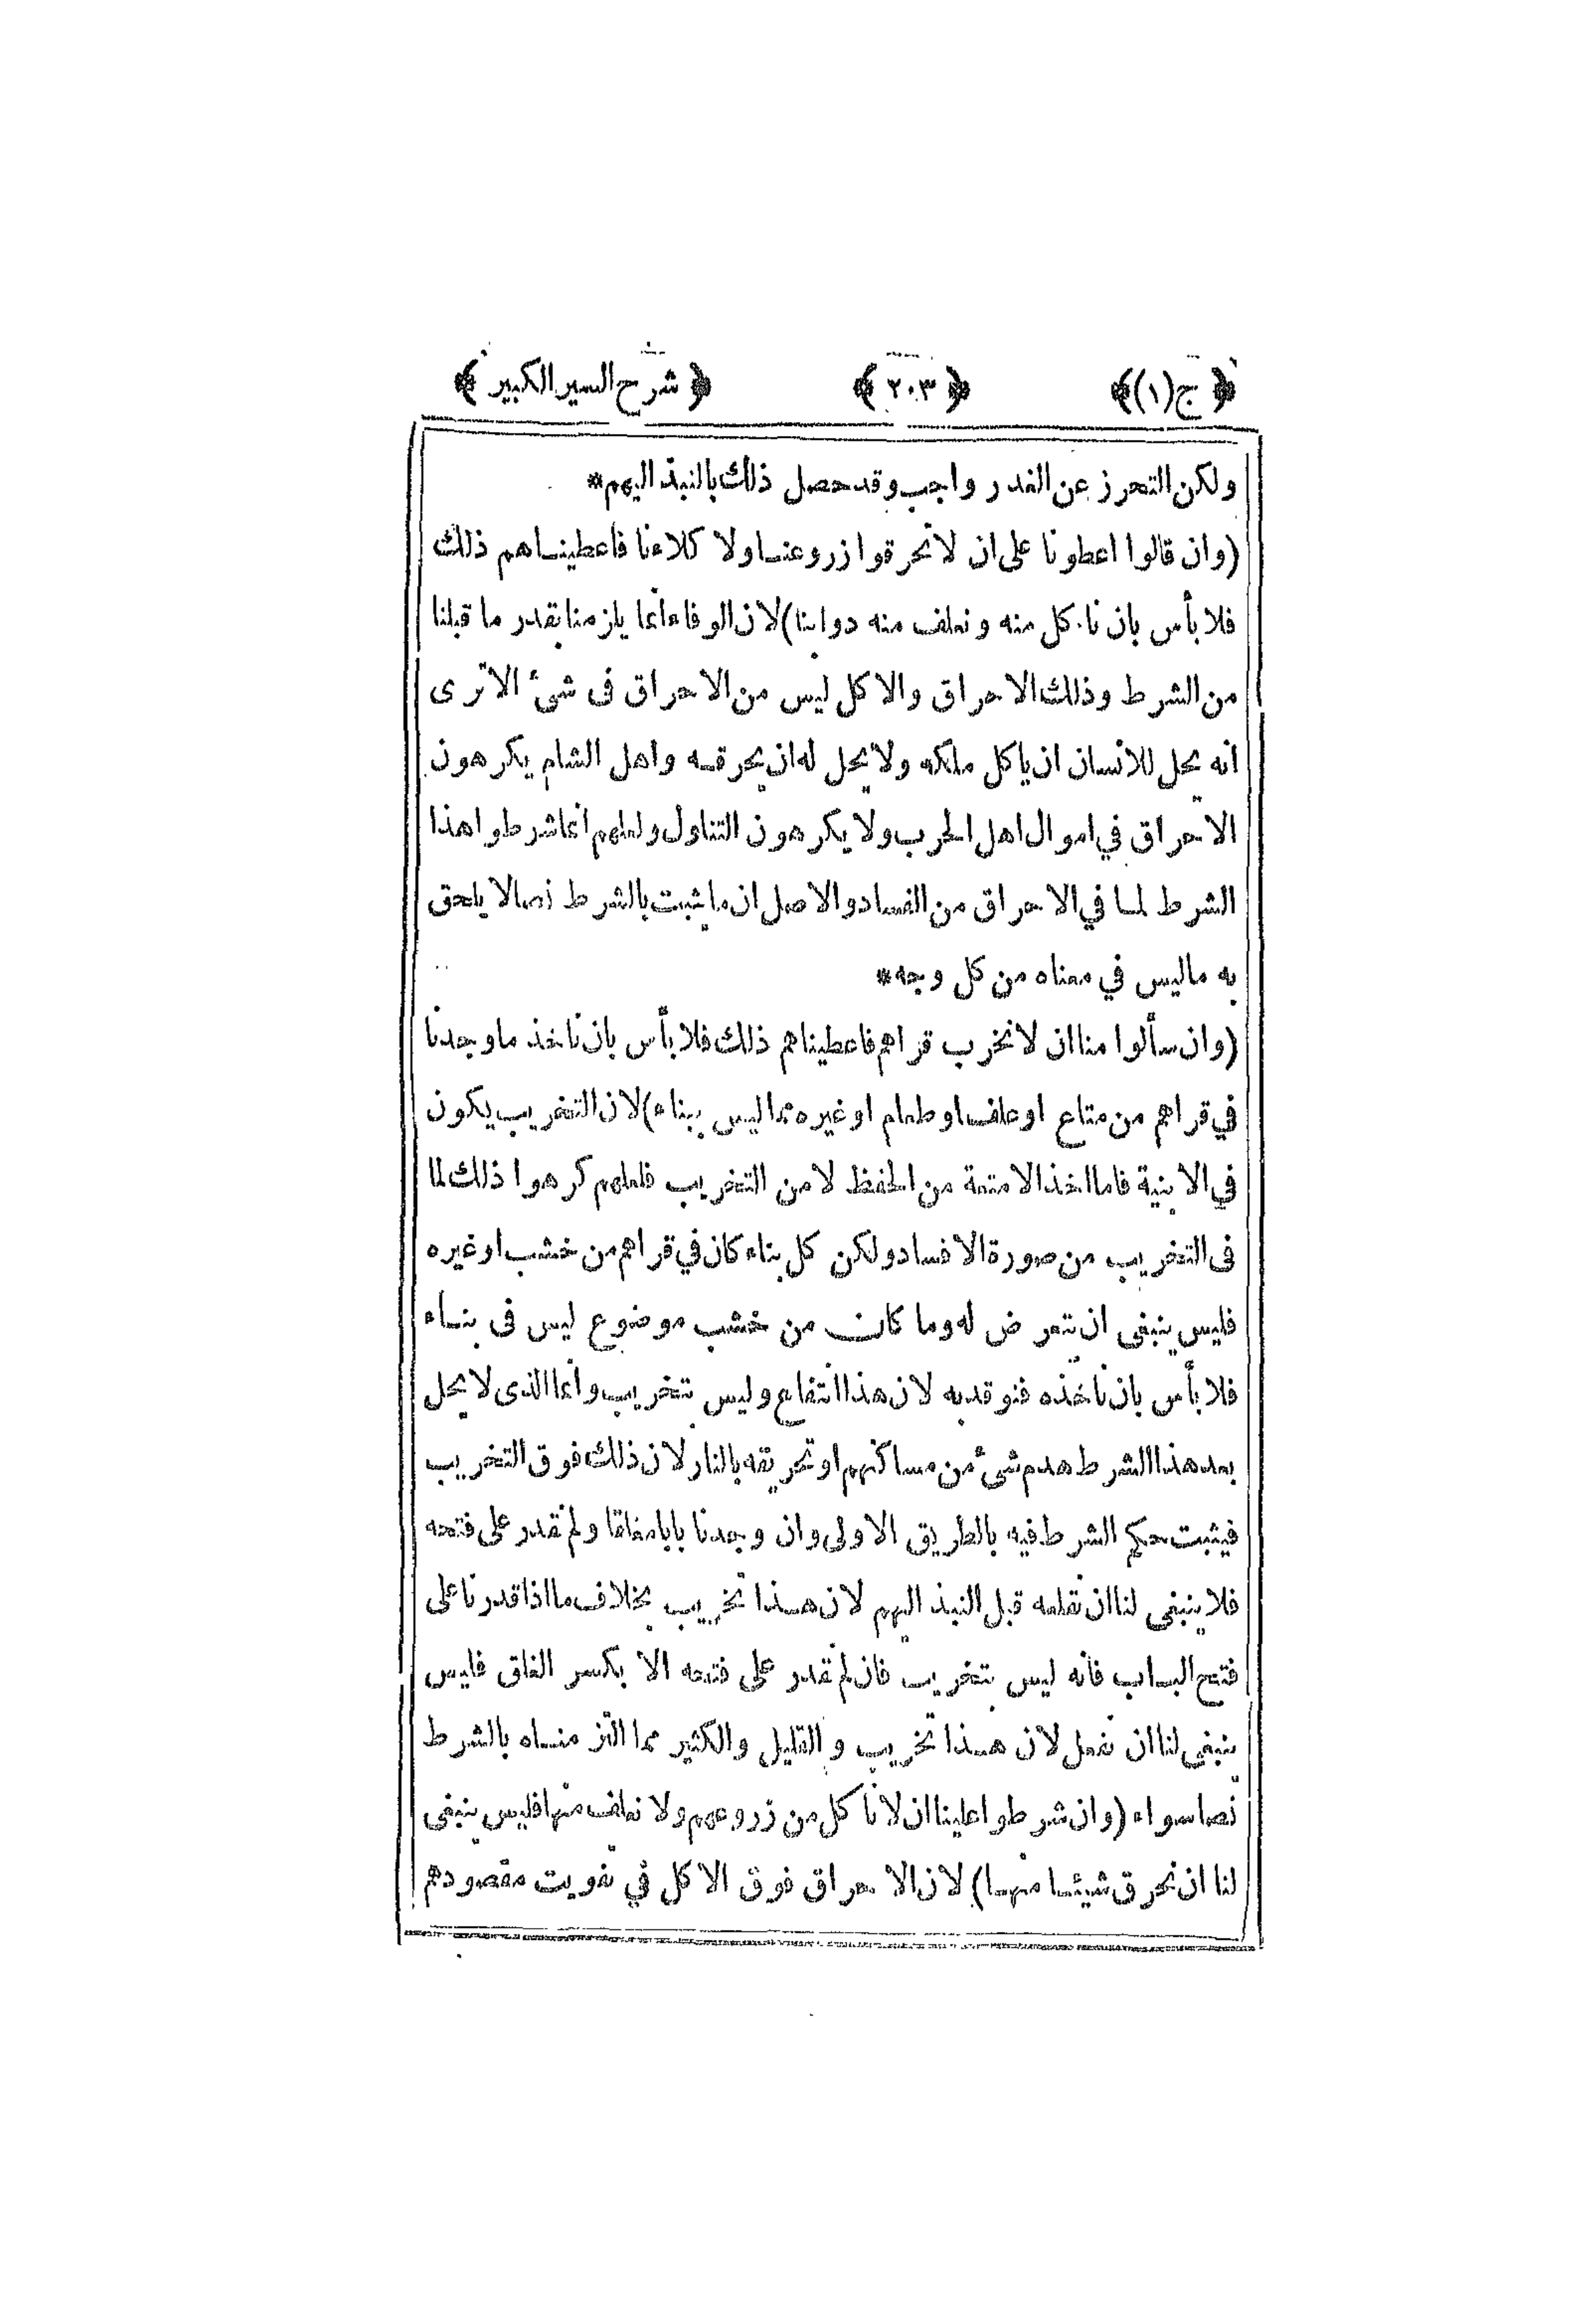 ﴿ ج (١) ﴾ ﴿ ٢٠٣ ﴾ ﴿ شرح السير الكبير ﴾
ولكن التحرز عن الغدر واجب وقد حصل ذلك بالنبذ اليهم*
(وان قالوا اعطونا على ان لا تحرقوا زروعنا ولا كلاءنا فاعطيناهم ذلك
فلا بأس بان ناكل منه ونعلف منه دوابنا) لان الوفاء انما يلزمنا بقدر ما قبلنا
من الشرط وذلك الاحراق والاكل ليس من الاحراق فى شئ الا ترى
انه يحل للانسان ان ياكل ملكه ولا يحل له ان يحرقه واهل الشام يكرهون
الاحراق في اموال اهل الحرب ولا يكرهون التناول ولعلهم انما شرطوا هذا
الشرط لما في الاحراق من الفساد والاصل ان ما يثبت بالشرط نصا لا يلحق
به ما ليس في معناه من كل وجه*
(وان سألوا منا ان لا نخرب قراهم فاعطيناهم ذلك فلا بأس بان ناخذ ما وجدنا
في قراهم من متاع او علف او طعام او غيره مما ليس ببناء) لان التخريب يكون
في الابنية فاما اخذ الامتعة من الحفظ لا من التخريب فلعلهم كرهوا ذلك لما
فى التخريب من صورة الافساد ولكن كل بناء كان في قراهم من خشب او غيره
فليس ينبغى ان نتعرض له وما كان من خشب موضوع ليس فى بناء
فلا بأس بان ناخذه فنوقد به لان هذا انتفاع وليس بتخريب وانما الذى لا يحل
بعد هذا الشرط هدم شئ من مساكنهم او تحريقه بالنار لان ذلك فوق التخريب
فيثبت حكم الشرط فيه بالطريق الاولى وان وجدنا بابا مغلقا ولم نقدر على فتحه
فلا ينبغى لنا ان نقلعه قبل النبذ اليهم لان هذا تخريب بخلاف ما اذا قدرنا على
فتح الباب فانه ليس بتخريب فان لم نقدر على فتحه الا بكسر الغلق فليس
ينبغى لنا ان نفعل لان هذا تخريب والقليل والكثير مما التزمناه بالشرط
نصا سواء (وان شرطوا علينا ان لا نأكل من زروعهم ولا نعلف منها فليس ينبغى
لنا ان نحرق شيئا منها) لان الاحراق فوق الاكل في تفويت مقصودهم